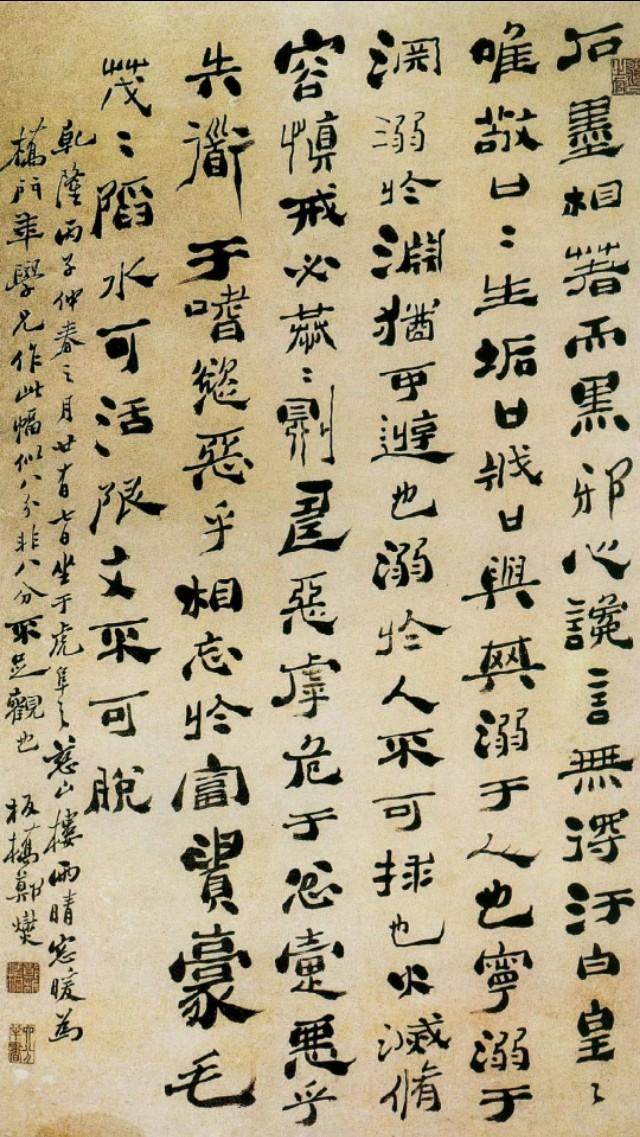 石墨相著而黑邪心讒言無得汙白皇〻
唯敬口〻生垢口戕口與其溺于人也寧溺于
淵溺於淵猶可遊也溺於人不可捄也火滅脩
容慎戒必恭〻則壽惡虖危于忿疐惡乎
失道于嗜慾惡乎相忘於富貴豪毛
茂〻陷水可活陷文不可脫
乾隆丙子仲春之月廿有七日坐于虎阜之慈山樓雨晴窓暖為
橋門華學兄作此幅似八分非八分不足觀也 板橋鄭燮